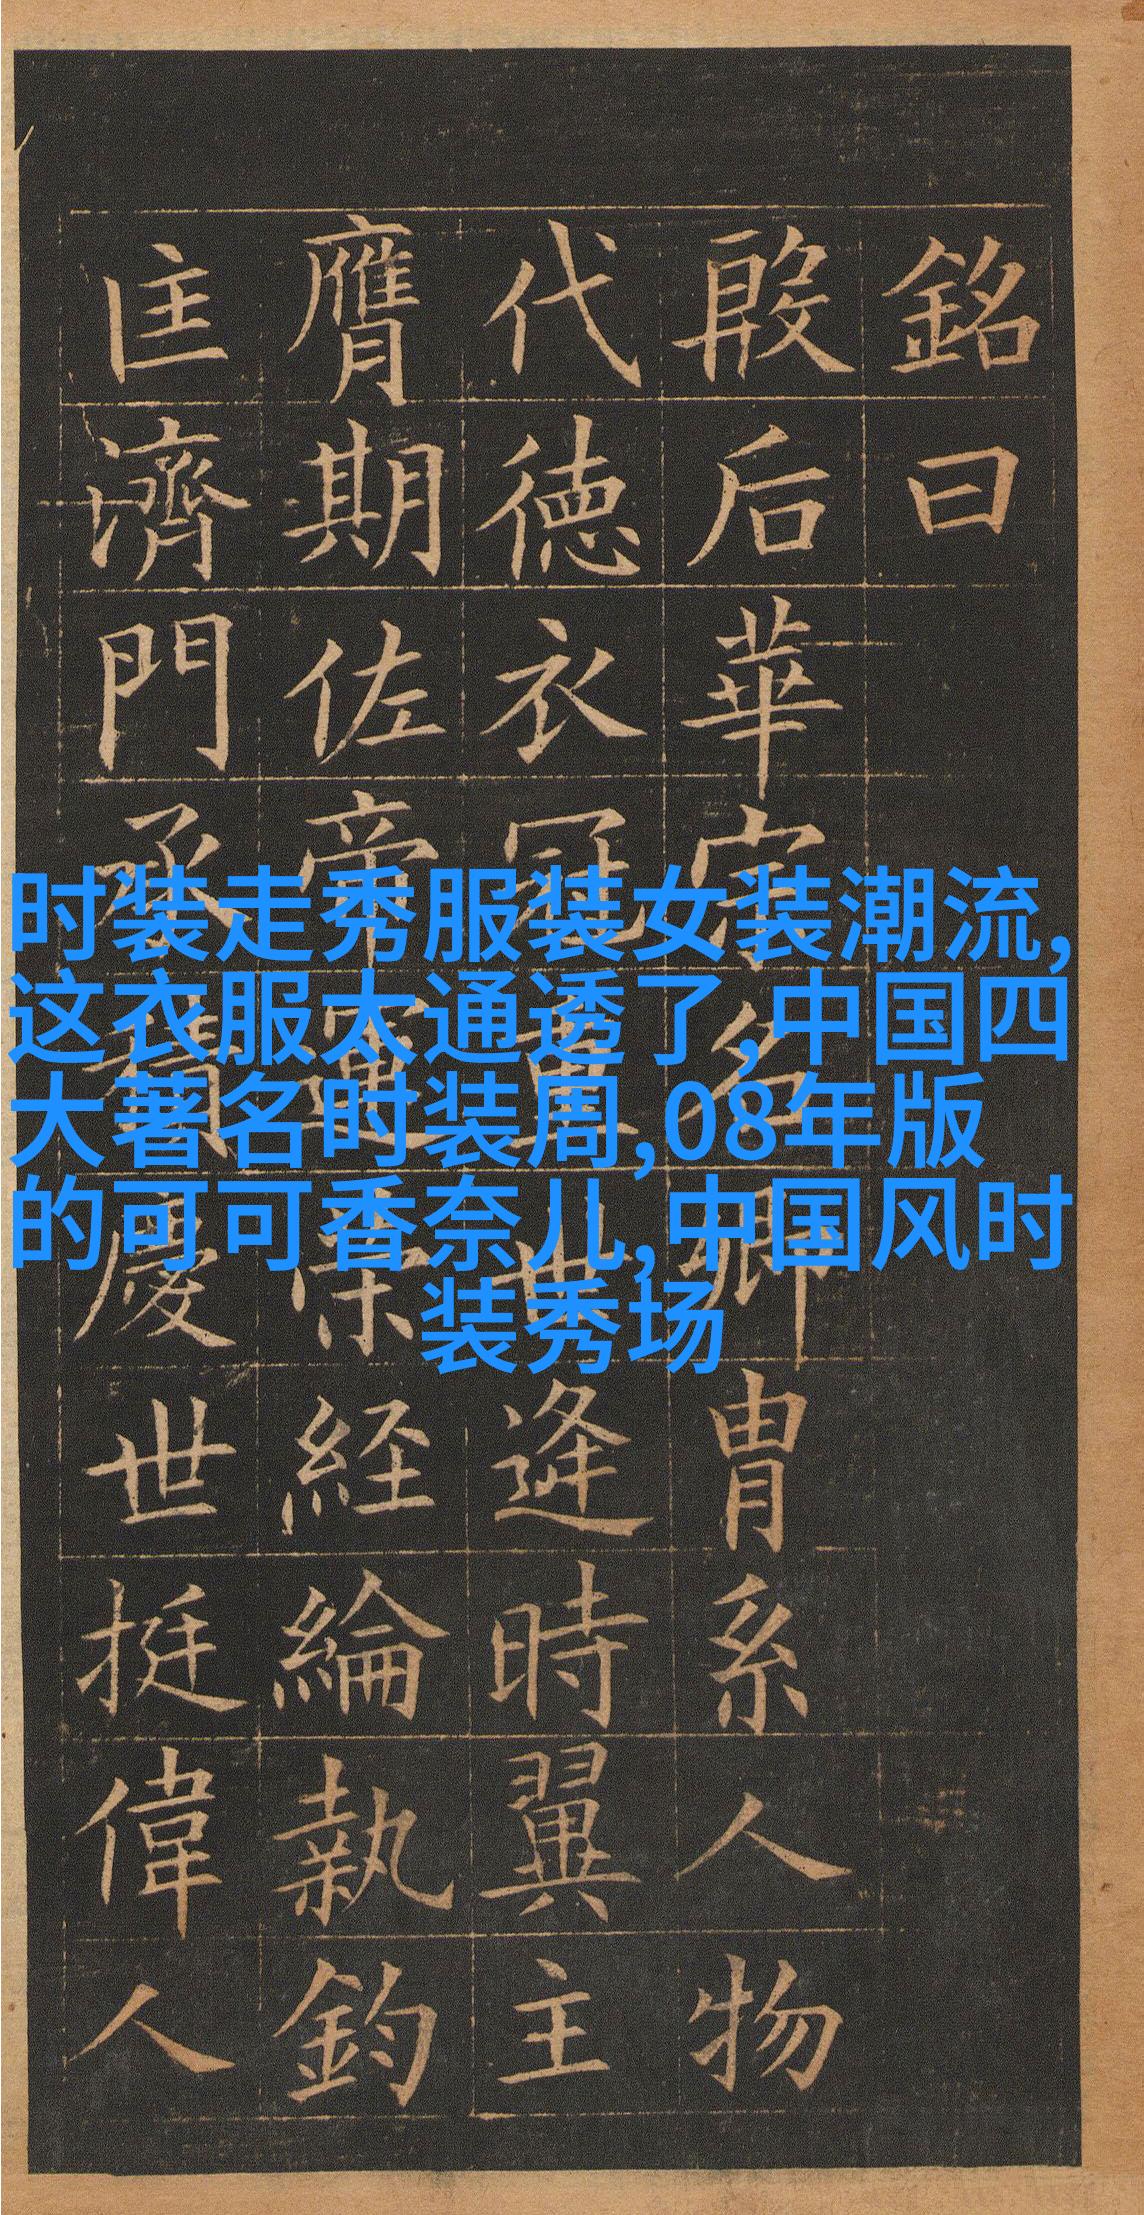 銘曰
殷后華宗名卿冑系人物
代德衣冠重世逢時翼主
膺期佐帝運策経綸執鈞
匡濟門承積慶世挺偉人
时装走秀服装女装潮流,
这衣服太通透了,中国四
大著名时装周,08年版
的可可香奈儿,中国风时
装秀场